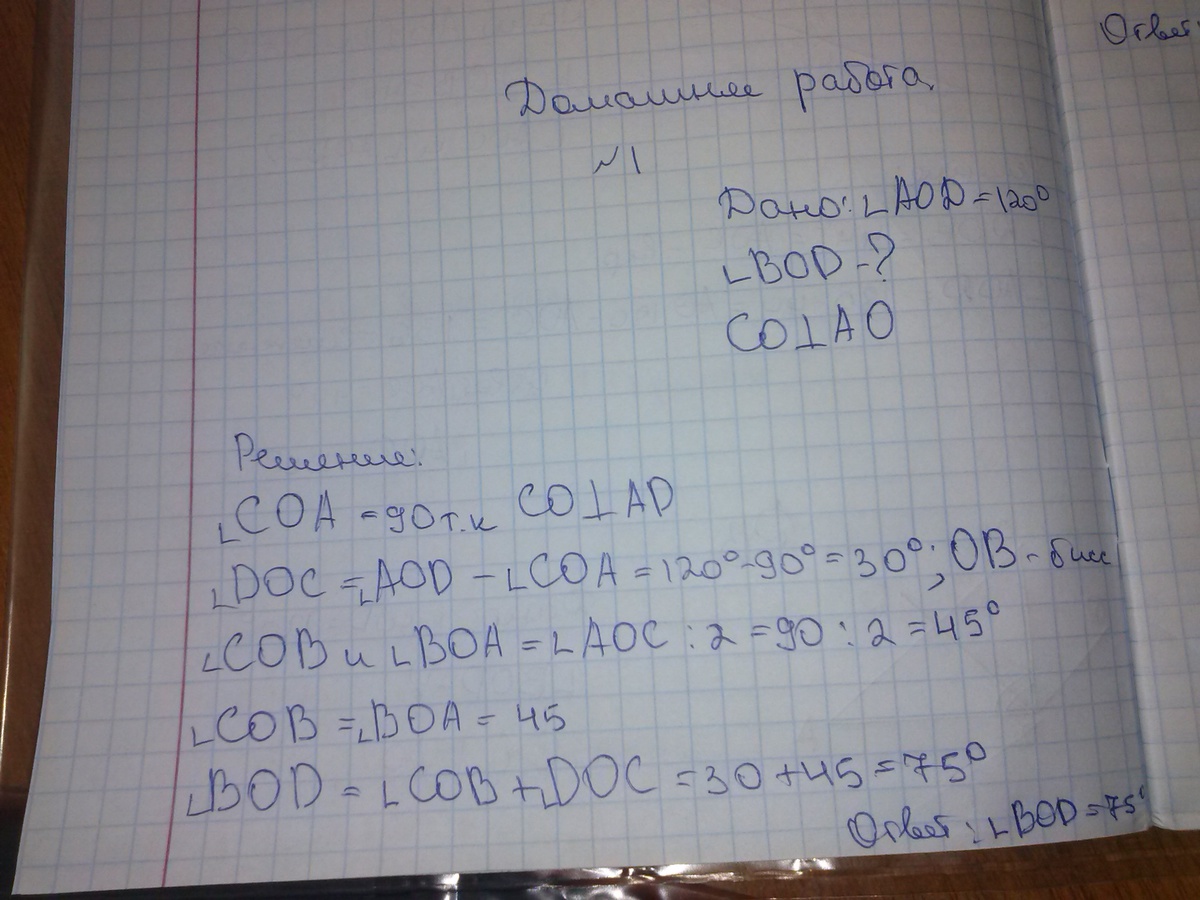 Ответ:
Домашнее работа
№1
Дано: ∟AOD = 120°
∟BOD - ?
CO⊥AO
Решение:
∟COA = 90 т.к CO⊥AD
∟DOC = ∟AOD - ∟COA = 120° - 90° = 30°; OB - бисс
∟COB и ∟BOA = ∟AOC : 2 = 90 : 2 = 45°
∟COB = ∟BOA = 45
∟BOD = ∟COB + ∟DOC = 30 + 45 = 75°
Ответ: ∟BOD = 75°